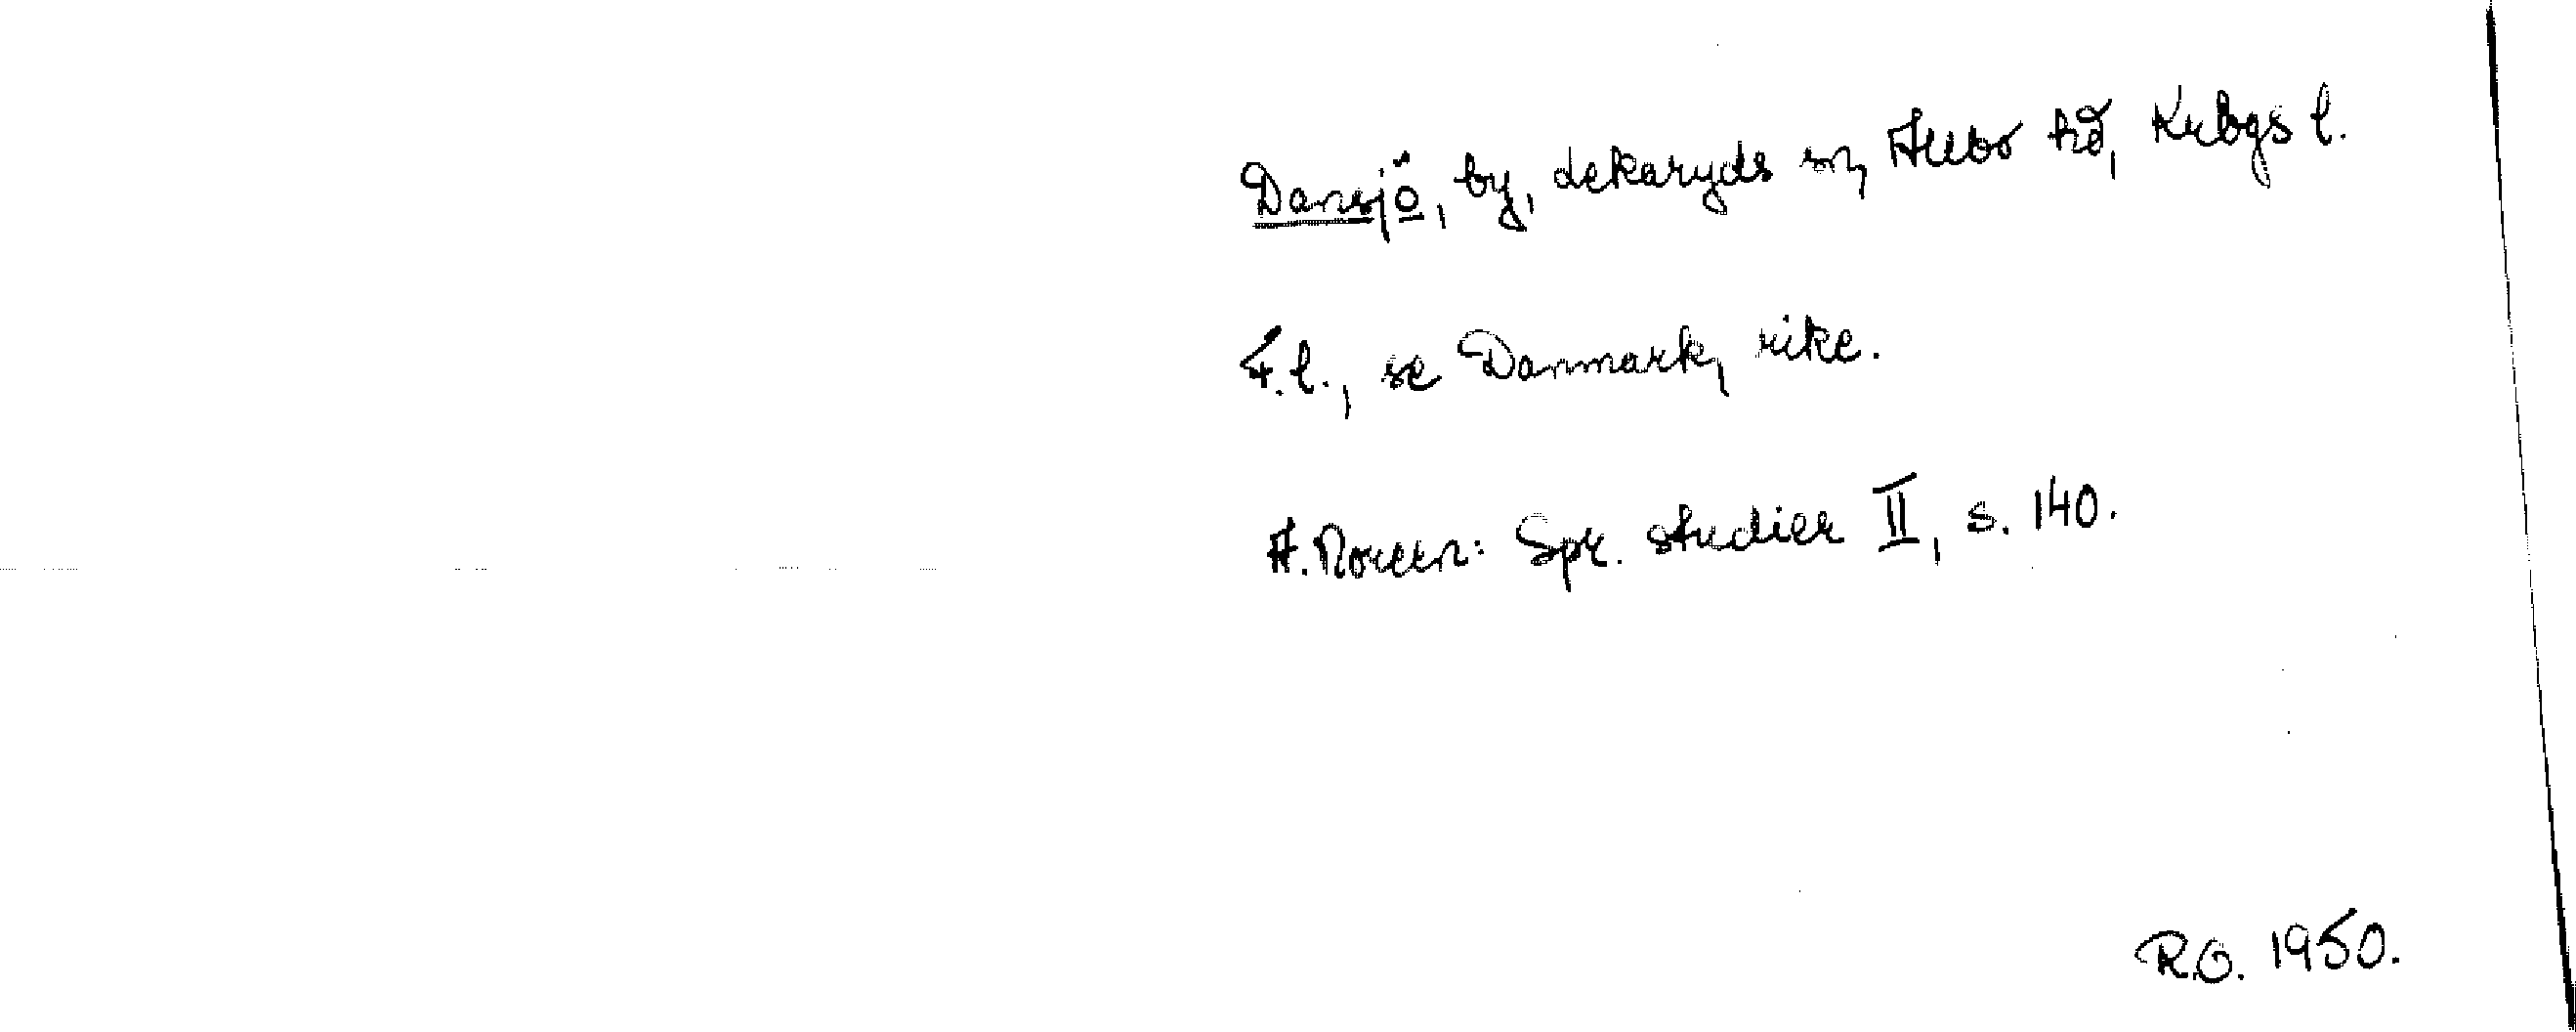 Dansjö, by, Lekaryds sn, Allbo hd, Krbgs l.
F.l., se Danmark, rike.
A. Noreen: Spr. studier II, s. 140.
R.O. 1950.